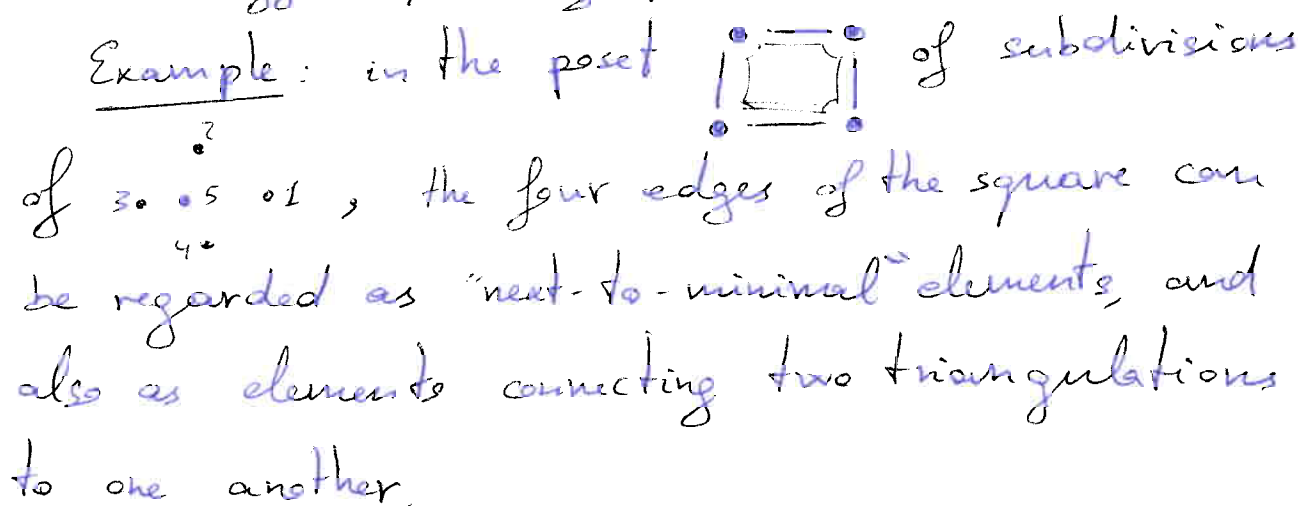 Example: in the poset of subdivisions
2
of 3 5 1, the four edges of the square can
4
be regarded as "next-to-minimal" elements, and
also as elements connecting two triangulations
to one another.